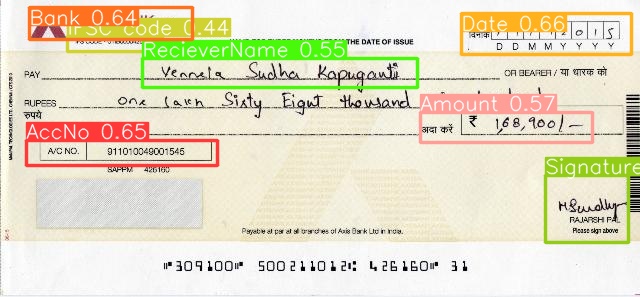 Bank 0.64
IFSC code 0.44
Date 0.66
दिनांक 2015
D D M M Y Y Y Y
THE DATE OF ISSUE
RecieverName 0.55
PAY Vennela Sudha Kapuganti OR BEARER / या धारक को
RUPEES one lakh Sixty Eight thousand
रुपये
Amount 0.57
अदा करें ₹ 1,68,900/-
AccNo 0.65
A/C NO. 911010049001545
SAPPM 426160
Signature
RAJARSHI PAL
Please sign above
Payable at par at all branches of Axis Bank Ltd in India.
⑈309100⑈ 500211012⑆ 426160⑈ 31